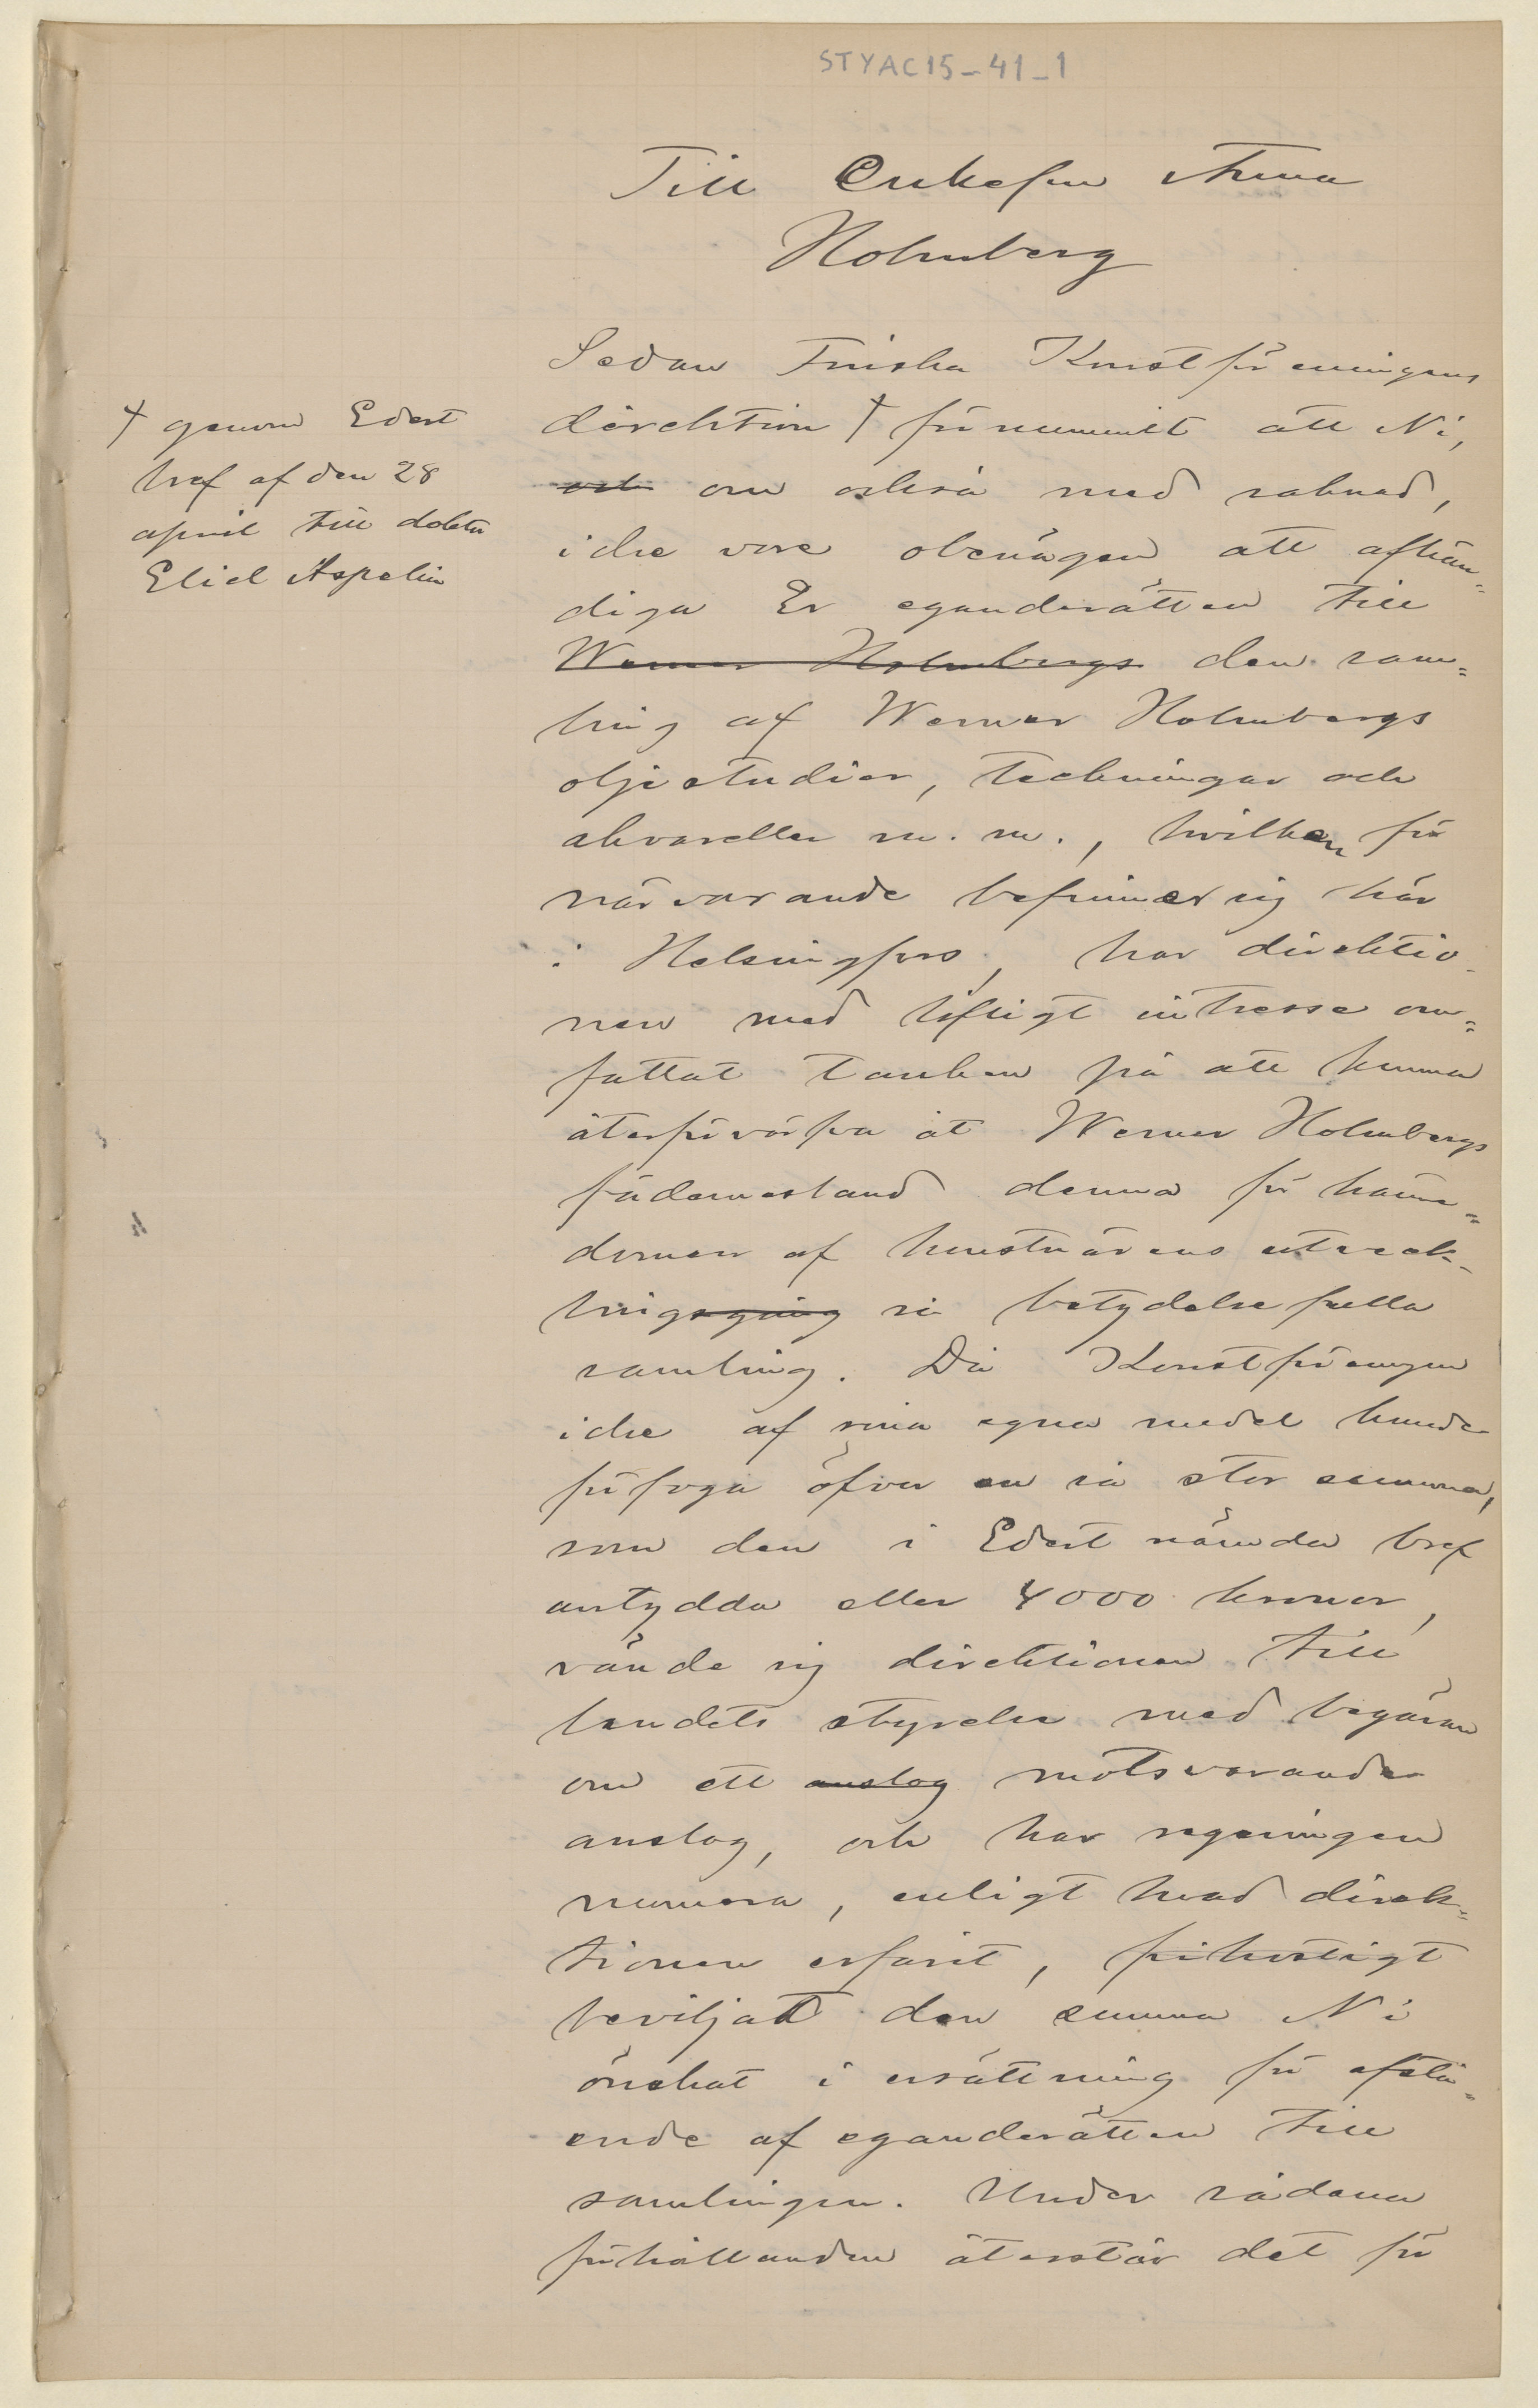 STYAC15-41_1
Till Enkefru Anna
Holmberg
Sedan Finska Konstföreningens
direktion † förnummit att Ni,
och om också med saknad,
icke vore obenägen att afhän=
diga Er eganderätten till
Werner Holmbergs den sam=
ling af Werner Holmbergs
oljestudier, teckningar och
akvareller m. m., hvilken för
närvarande befinner sig här
i Helsingfors, har direktio-
nen med lifligt intresse om=
fattat tanken på att kunna
återförvärfva åt Werner Holmbergs
fädernesland denna för känne=
domen af konstnärens utveck-
lingsgång så betydelsefulla
samling. Då Konstföreningen
icke af sina egna medel kunde
förfoga öfver en så stor summa,
som den i Edert nämda bref
antydda eller 4000 kronor,
vände sig direktionen till
landets styrelse med begäran
om ett anslag motsvarande
anslag, och har regeringen
numera, enligt hvad direk=
tionen erfarit, frikostigt
beviljat den summa Ni
önskat i ersättning för afstå=
ende af eganderätten till
samlingen. Under sådana
förhållanden återstår det för
† genom Edert
bref af den 28
april till doktor
Eliel Aspelin